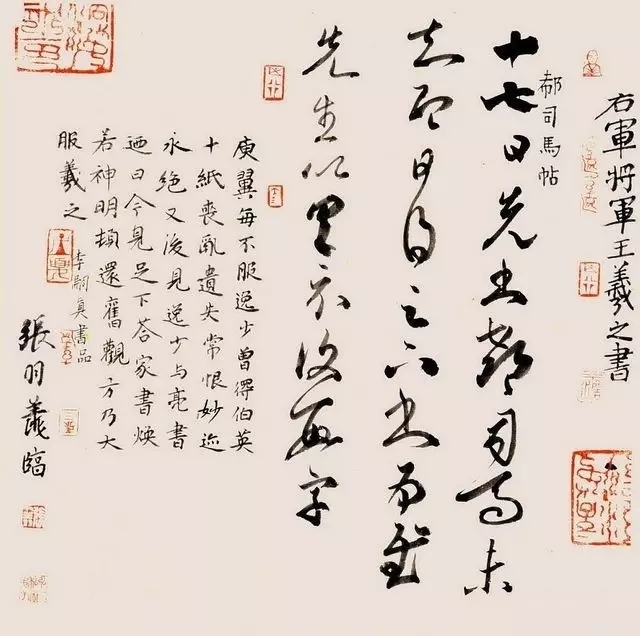 右軍將軍王羲之書
郗司馬帖
十七日先書郗司馬未
去即日得足下書為慰
先書以具示復數字
庾翼每不服逸少曾得伯英
十紙喪亂遺失常恨妙迹
永絕又後見逸少與亮書
廼曰今見足下荅家書煥
若神明頓還舊觀方乃大
服羲之
李嗣真書品
張羽臨